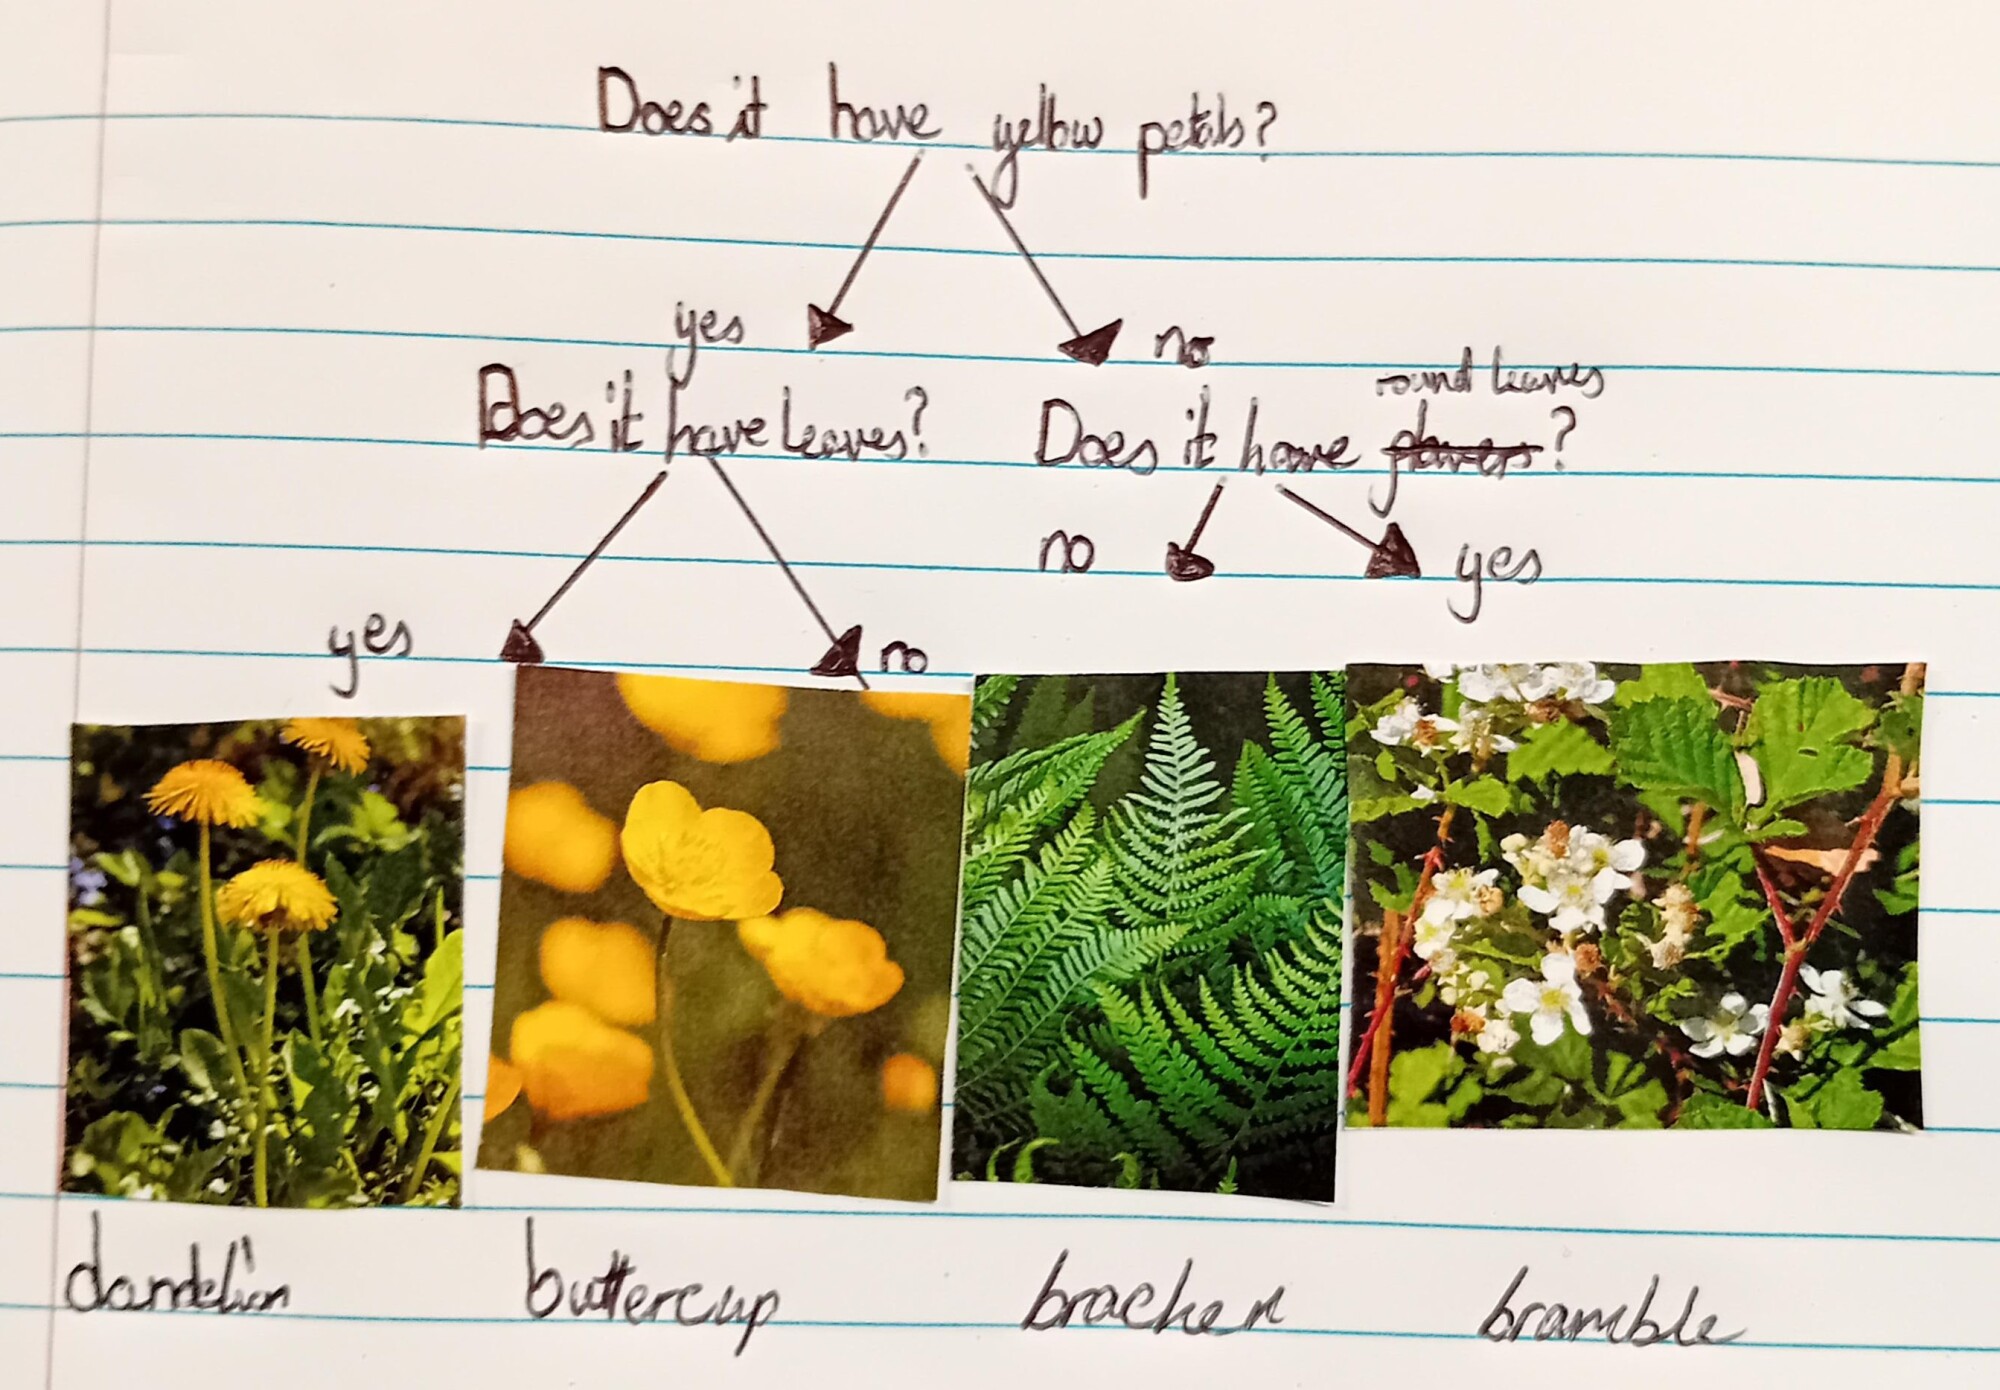 Does it have yellow petals?
yes
no
Does it have leaves?
round leaves
Does it have flowers?
no
yes
yes
no
dandelion
buttercup
bracken
bramble